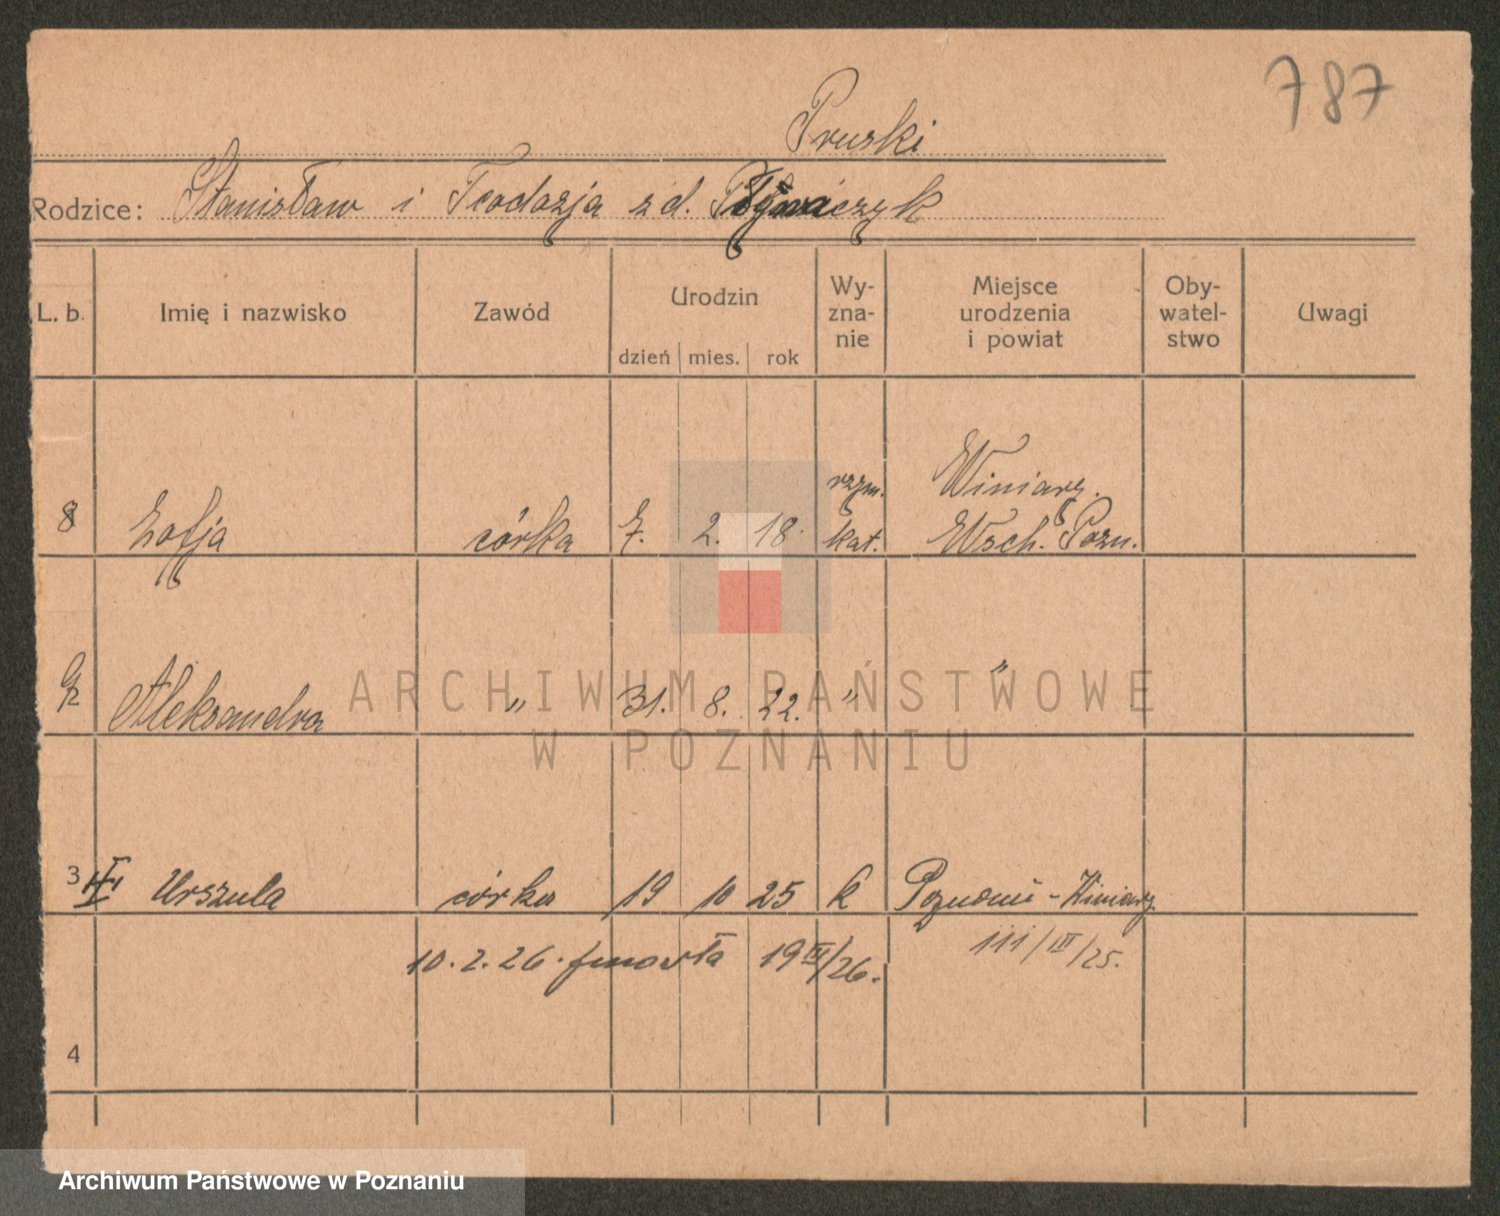 787
Pruski
Rodzice: Stanisław i Teodozja z d.
L. b. Imię i nazwisko Zawód Urodzin dzień mies. rok Wy-zna-nie Miejsce urodzenia i powiat Oby-watel-stwo Uwagi
8 Zofja córka 7. 2. 18. rzym. kat. Winiary. Wsch. Pozn.
Aleksandra " 31. 8. 22. " "
3 Urszula córka 19 10 25 k Poznań - Winiary
10. 2. 26. zmarła 19 /26. III/25.
4
ARCHIWUM PAŃSTWOWE
W POZNANIU
Archiwum Państwowe w Poznaniu